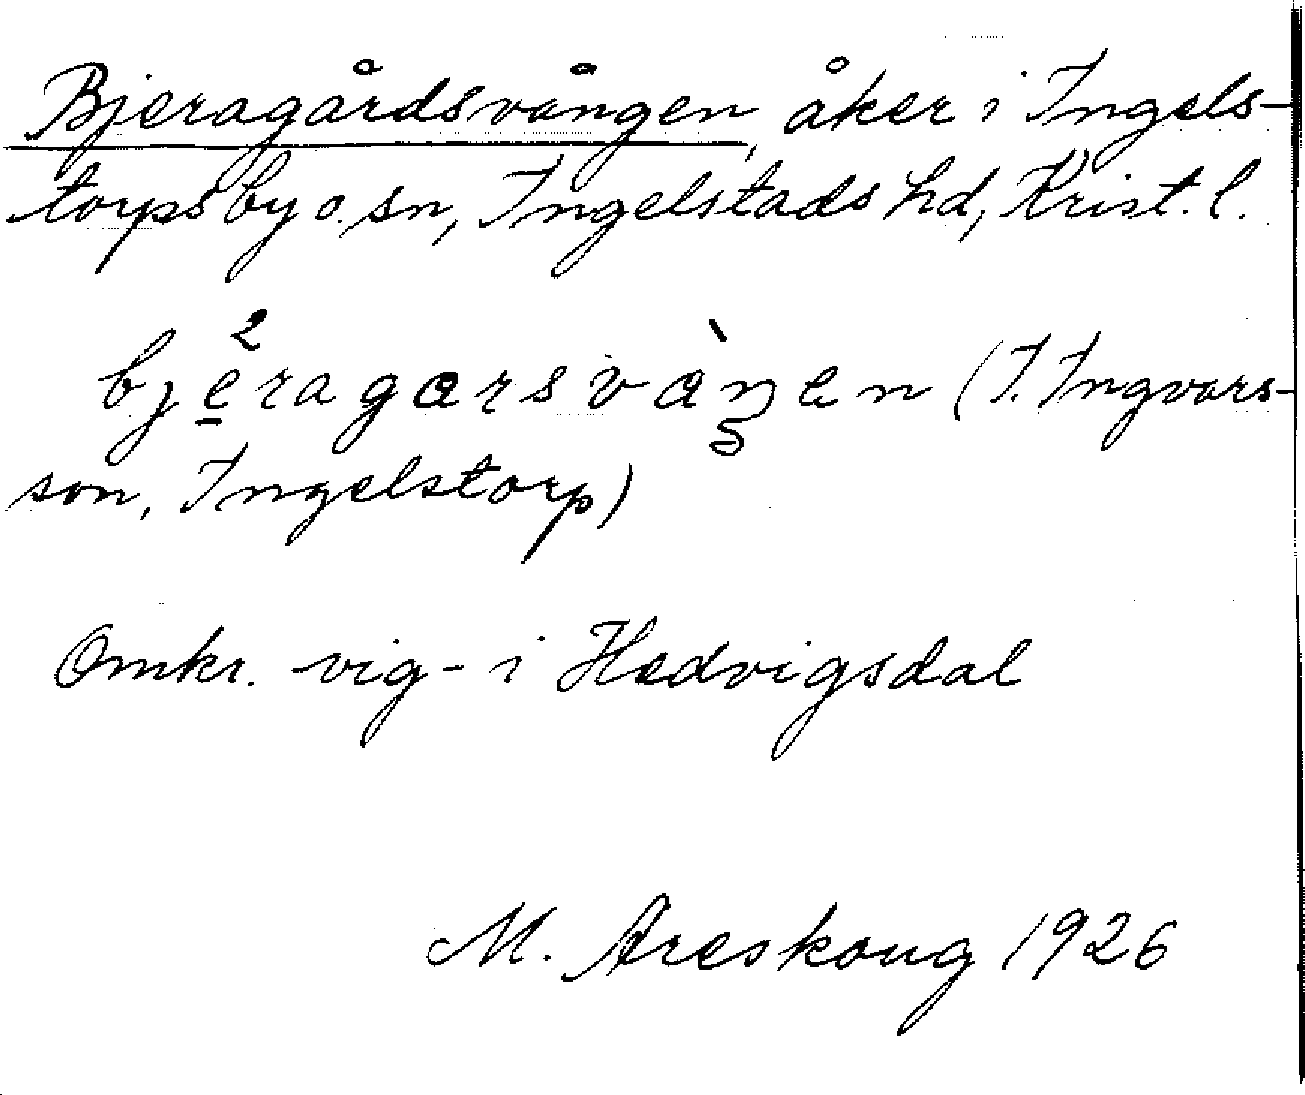 Bjeragårdsvången, åker i Ingels-
torps by o. sn, Ingelstads hd, Krist. l.
bje̠²ragarsvàŋen (I. Ingvars-
son, Ingelstorp)
Omkr. -vig- i Hedvigsdal
M. Areskoug 1926